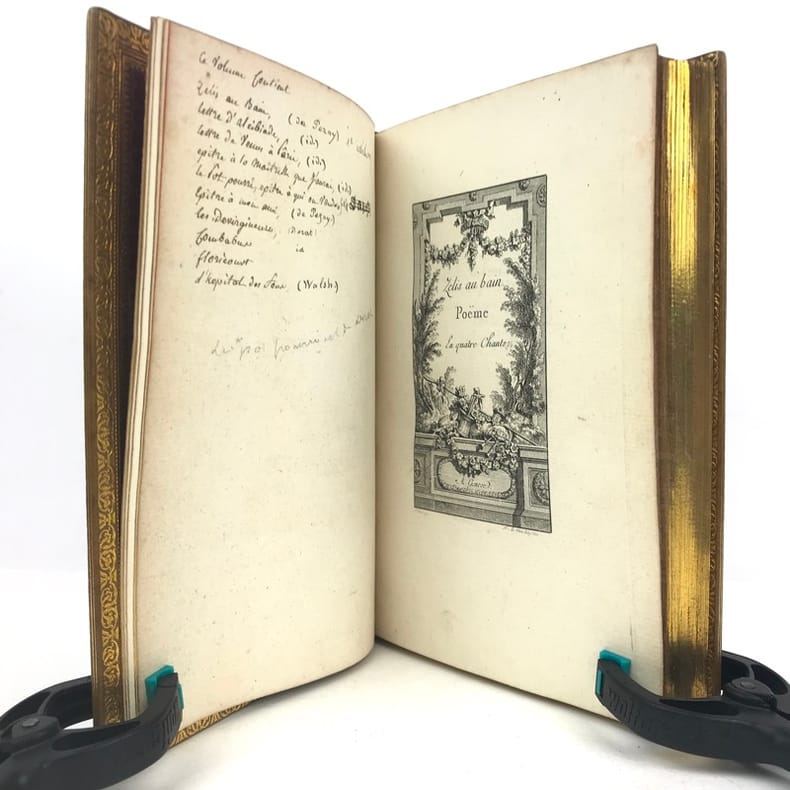 Ce Volume Contient
Zélis au Bain, (de Pezay)
lettre d'alcibiade, (id)
lettre de Venus à Pâris, (id)
epitre à la Maitresse que j'aurai, (id)
le Pot-pourri, epitre à qui on Voudra,
Epitre à mon ami, (de Pezay)
les Devirgineurs, Dorat
Combabus id
floricourt
l'hopital des fous (Walsh)
Le pot pourri est de Dorat
Zélis au bain
Poëme
En quatre Chants
A Genève